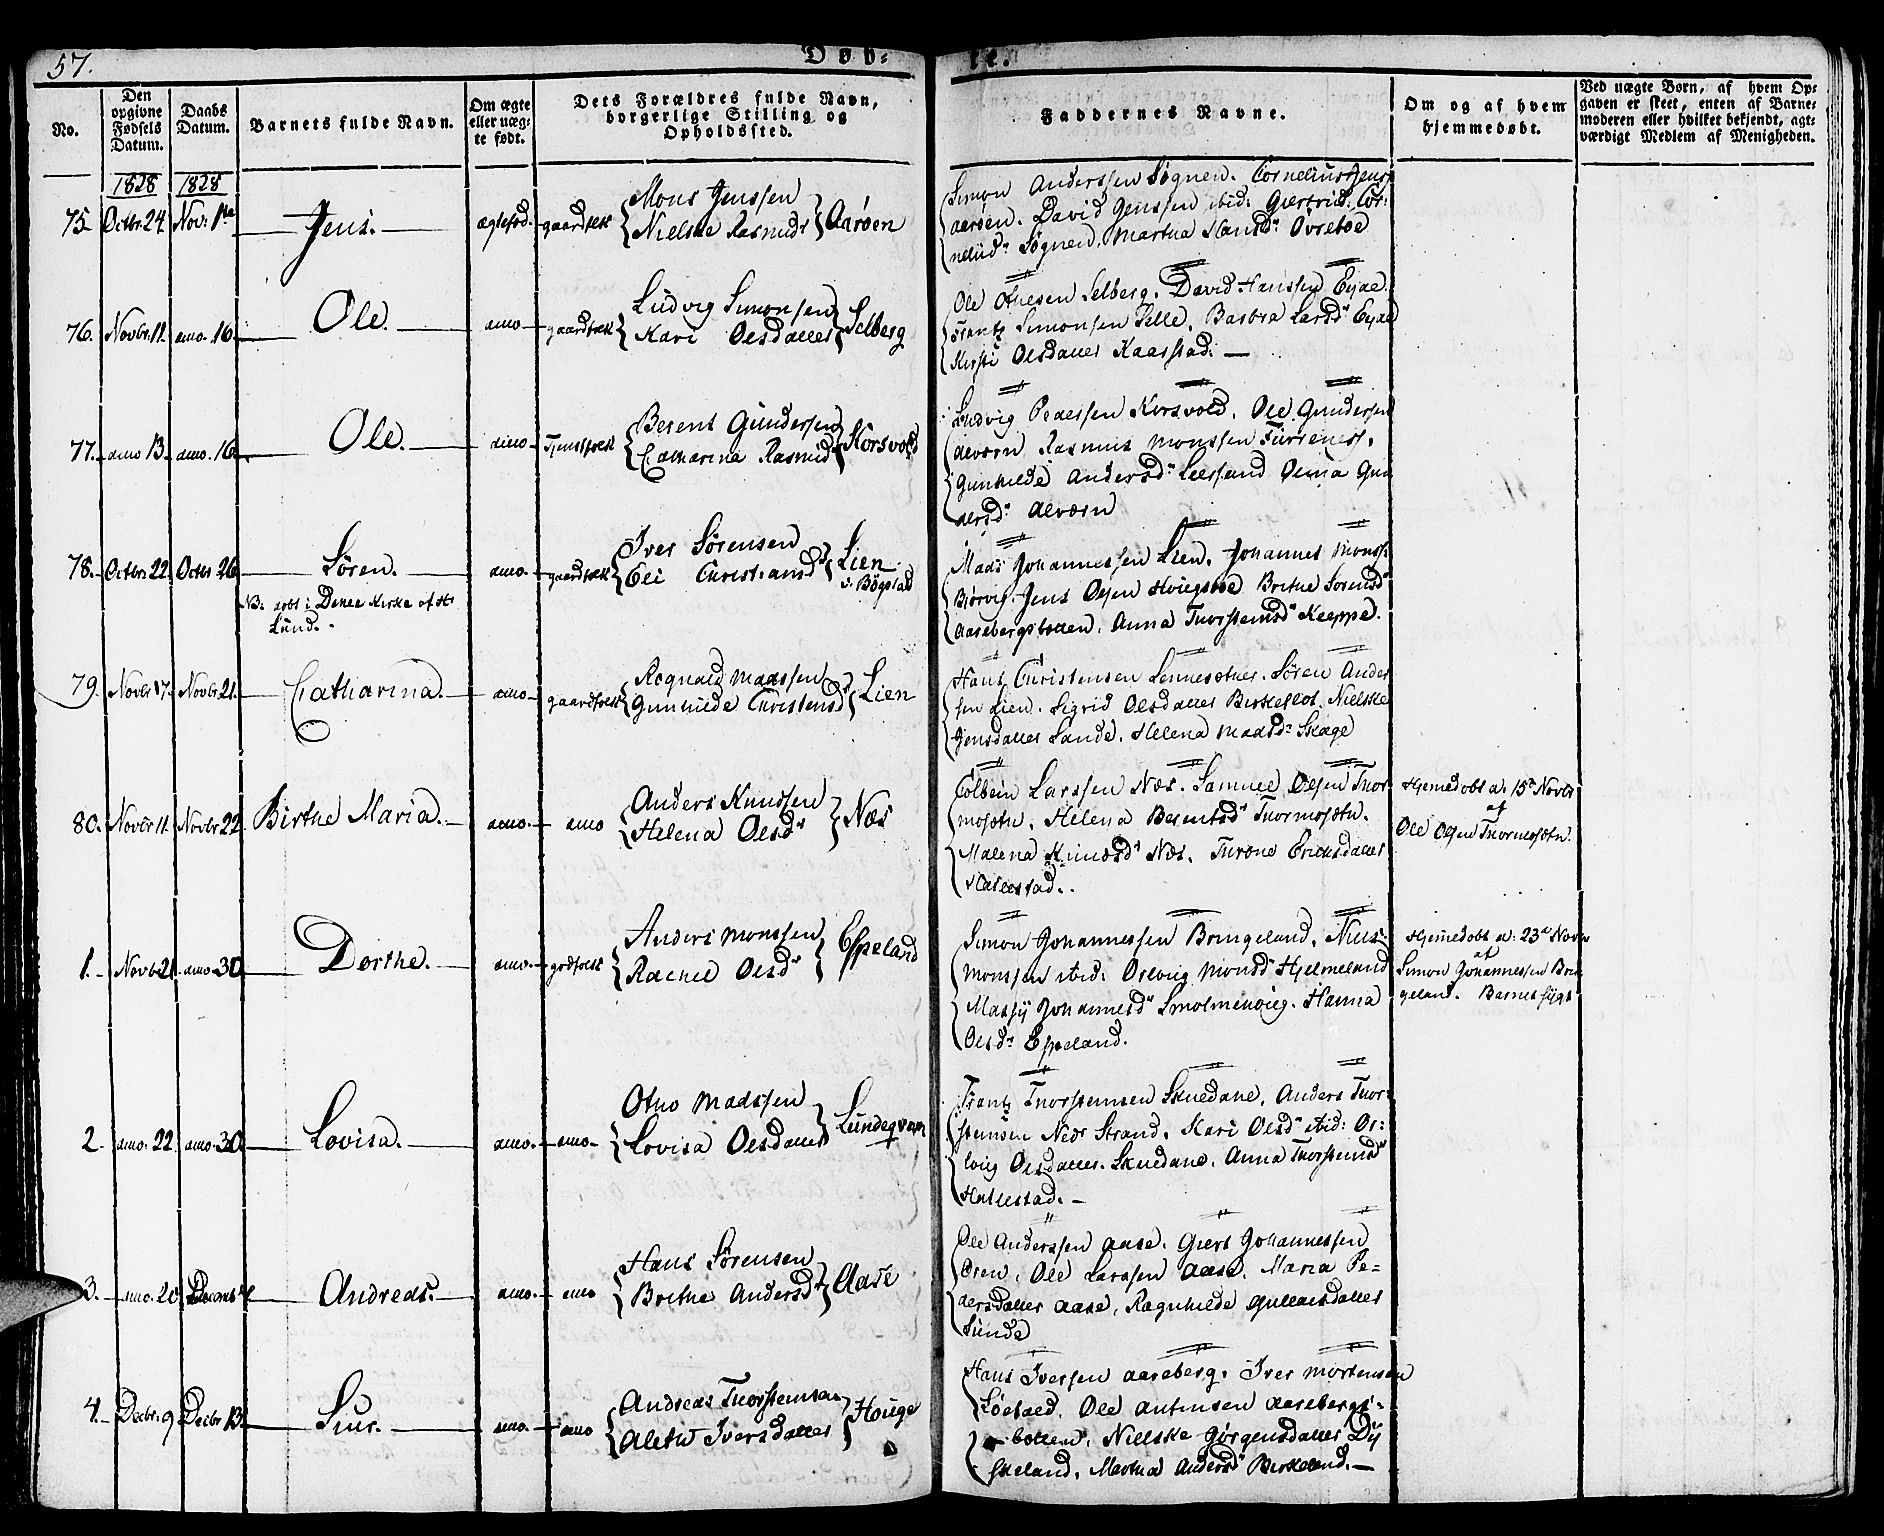 57.
Døb-
te.
No.
Den opgivne Fødsels Datum.
Daabs Datum.
Barnets fulde Navn.
Om ægte eller uægte født.
Dets Forældres fulde Navn, borgerlige Stilling og Opholdssted.
Faddernes Navne.
Om og af hvem hjemmedøbt.
Ved uægte Børn, af hvem Opgaven er skeet, enten af Barnemoderen eller hvilket bekjendt, agtværdigt Medlem af Menigheden.
1828 1828
75 Octbr. 24 Nov: 1ste Jens. ægtefød. gaardfolk Mons Jenssen
Nielske Rasmusdr Aarøen
Simon Anderssen Søgnen. Cornelius Jenss:
Aarøen. David Jenssen ibid: Giertrud Cor-
neliidr Søgnen, Martha Hansdr Øvrebøe
76. Novbr. 11. amo. 16. Ole. amo gaardfolk Ludvig Simonsen
Kari Olsdatter Selberg
Ole Othesen Selberg. David Hanssen Eyde.
Frantz Simonsen Selle. Barbra Larsd Eyde
Kirsti Olsdatter Kaarstad. —
77. amo 13. amo. 16. Ole. amo Tjenstfolk Berent Gundersen
Catharina Rasmusd Korsvold
Ludvig Pedersen Korsvold. Ole Gundersen
Alværn Rasmus Monssen Furrenes.
Gunhilde Andersdr Leersund Olina Gun
dersdr Alværn
78. Octbr. 22. Octbr 26 Søren. amo. gaardfolk Iver Sørensen
Eli Christiansd Lien
i Bøgstad
NB. døbt i Denee Kirke af Hr
Lund.
Mads Johannessen Lien. Johannes Monss:
Biørvig. Jens Olsen Hviegsbøe Birthe Sørensdr
Aasebergsbotten, Anna Thorstensdr Kleppe.
79 Novbr 17. Novbr 21. Catharina. amo gaardfolk Rognald Madssen
Gunhilde Christensd Lien
Hans Christensen Lennesother. Søren Ander
sen Lien. Sigrid Olsdatter Birkeflot. Nielske
Jensdatter Sande. Helena Madsdr Skage
80. Novbr 11. Novbr 22 Birthe Maria. amo. amo Anders Knudsen
Helena Olsdr Næs
Colbein Larssen Næs. Samuel Olsen Thor-
mosøtn. Helena Berentsdr Thormosøtn.
Malena Knudsdr Næs. Throne Ericksdatter
Halestad.
Hjemedøbt d: 15de Novbr
af
Ole Olsen Thormosøtn.
1. Novb. 21. amo 30 Dorthe. amo. godfolk Anders Monssen
Rachel Olsdr Espeland
Simon Johannessen Bringeland. Niels
Monssen ibid: Orlvig Monsdr Hjelmeland
Massy Johannesdr Smolmenvieg. Hanna
Olsdr Espeland.
Hjemedøbt d: 23de Novbr
af
Simon Johannessen Brin
geland. Barnet sygt
2. amo. 22. amo. 30. Lovisa. amo. amo Otho Madssen
Lovisa Olsdatter Lundeqvam
Frantz Thorstensen Skuedane, Anders Thor-
stensen Nedr Strand. Kari Olsdr ibid: Or-
lvig Olsdatter. Skuedane. Anna Thorstensdr
Hallestad. —
3. amo. 20 Decembr 4 Andreas. amo. amo Hans Sørensen
Birthe Andersdr Aase
Ole Anderssen Aase. Giert Johannessen
Oren. Ole Larssen Aase. Maria Pe-
dersdatter Aase, Ragnhilde Gulleksdatter
Sunde
4. Decbr. 9 Decbr 13. Siur. amo. amo Andreas Thorstensen
Alethe Iversdatter Houge
Hans Iversen Aaseberg. Iver Mortensen
Løetæd. Ole Antensen Aasebergs-
botten. Nielske Jørgensdatter Dy
skeland. Martha Andersdr Birkeland. —